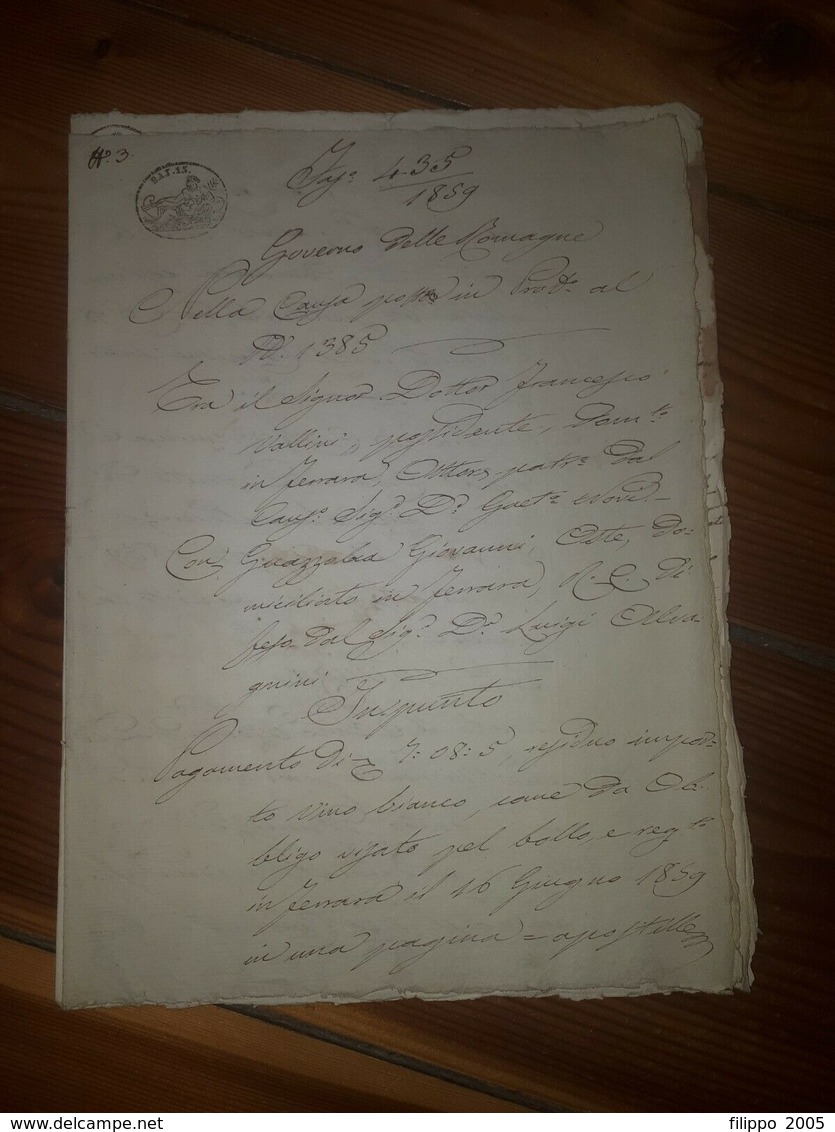 N.º 3.
BAJ. 15.
Fasº 435
1859
Governo delle Romagne
Nella Causa posta in Prodº al
Nº. 1385
Tra il Signor Dottor Francesco
Vallini, possidente, Domtº
in Ferrara, Attore, patrº dal
Causº Sigr Dr Gaetº
Con Guazzaloa Giovanni, Oste, do=
miciliato in Ferrara, R. C. di
feso dal Sigr Dr Luigi Alva
gnini
In punto
Pagamento di 7: 08: 5, residuo impor=
to vino bianco, come da Ob
bligo vistato pel bollo, e regtº
in Ferrara il 16 Giugno 1859
in una pagina = apostille
www.delcampe.net
filippo 2005